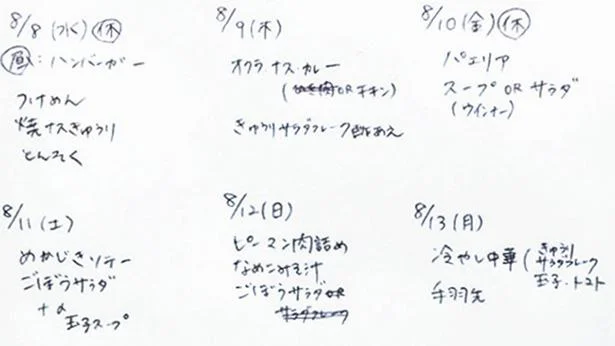 8/8(水)㊡
昼:ハンバーガー
つけめん
焼ナスきゅうり
とんそく
8/9(木)
オクラ・ナス・カレー
(ひき肉ORチキン)
きゅうりサラダフレーク酢あえ
8/10(金)㊡
パエリア
スープORサラダ
(ウインナー)
8/11(土)
めかじきソテー
ごぼうサラダ
玉子スープ
8/12(日)
ピーマン肉詰め
なめこみそ汁
ごぼうサラダOR
サラダフレーク
8/13(月)
冷やし中華(きゅうり
サラダフレーク
玉子・トマト
手羽先